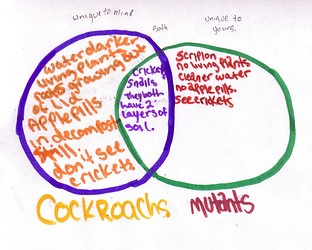 unique to mind
Both
unique to
yours.
water darker
living plants but
roots growing out
of lid
Apple pills
in decomposition
still
don't see
crickets
crickets
Snails
They both
have 2
layers of
soil.
no living plants
cleaner water
no apple pills.
see crickets
COCKROAChs
mutants